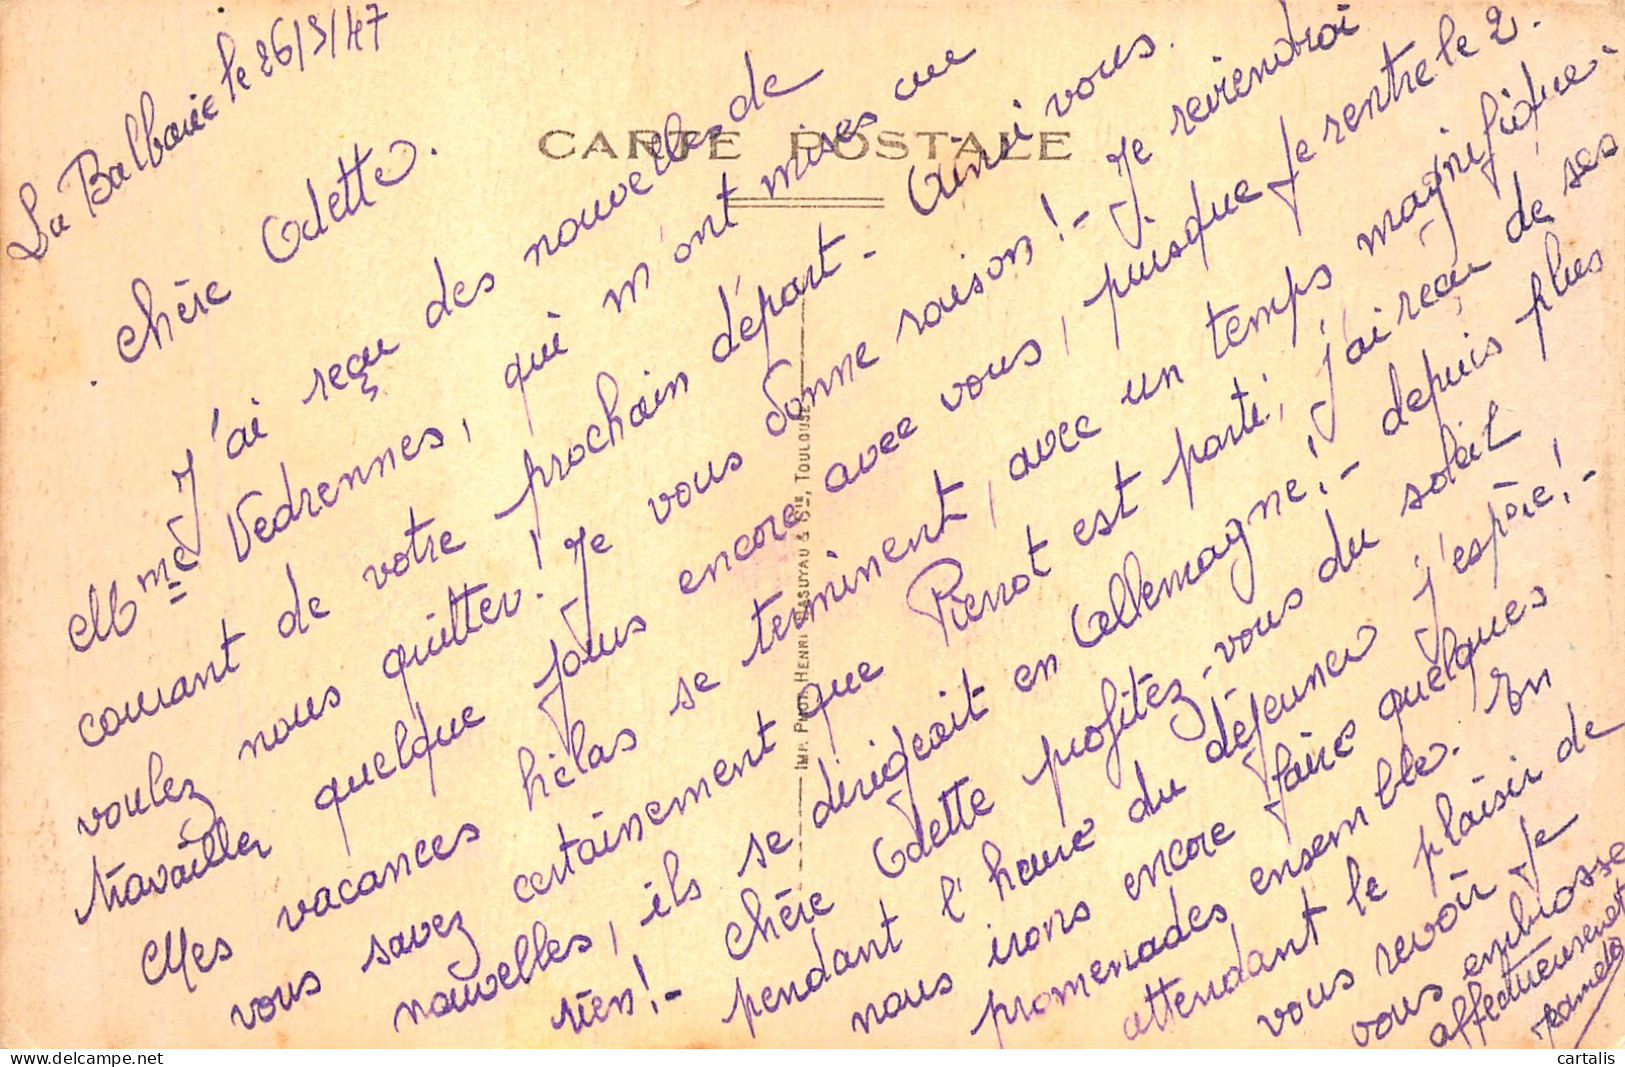 La Balbarie le 26/3/47
CARTE POSTALE
Chère Odette.
J'ai reçu des nouvelles de
Mme Vedrennes, qui m'ont mises au
courant de votre prochain départ - Ainsi vous
voulez nous quitter! Je vous donne raison! - Je reviendrai
travailler quelque jours encore avec vous, puisque je rentre le 2.
Mes vacances hélas se terminent, avec un temps magnifique.
vous savez certainement que Pierrot est parti; j'ai reçu de ses
nouvelles, ils se dirigeait en Allemagne! - depuis plus
rien! - Chère Odette profitez-vous du soleil
pendant l'heure du déjeuner j'espère! -
nous irons encore faire quelques
promenades ensemble. En
attendant le plaisir de
vous revoir Je
vous embrasse
affectueusement
IMP. PHOT. HENRI BASUYAU & Cie, TOULOUSE
cartalis